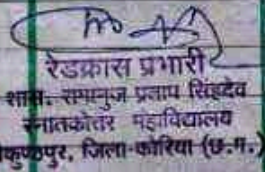 रेडक्रास प्रभारी
शास. रामानुज प्रताप सिंहदेव
स्नातकोत्तर महाविद्यालय
कुण्ठपुर, जिला-कोरिया (छ.ग.)